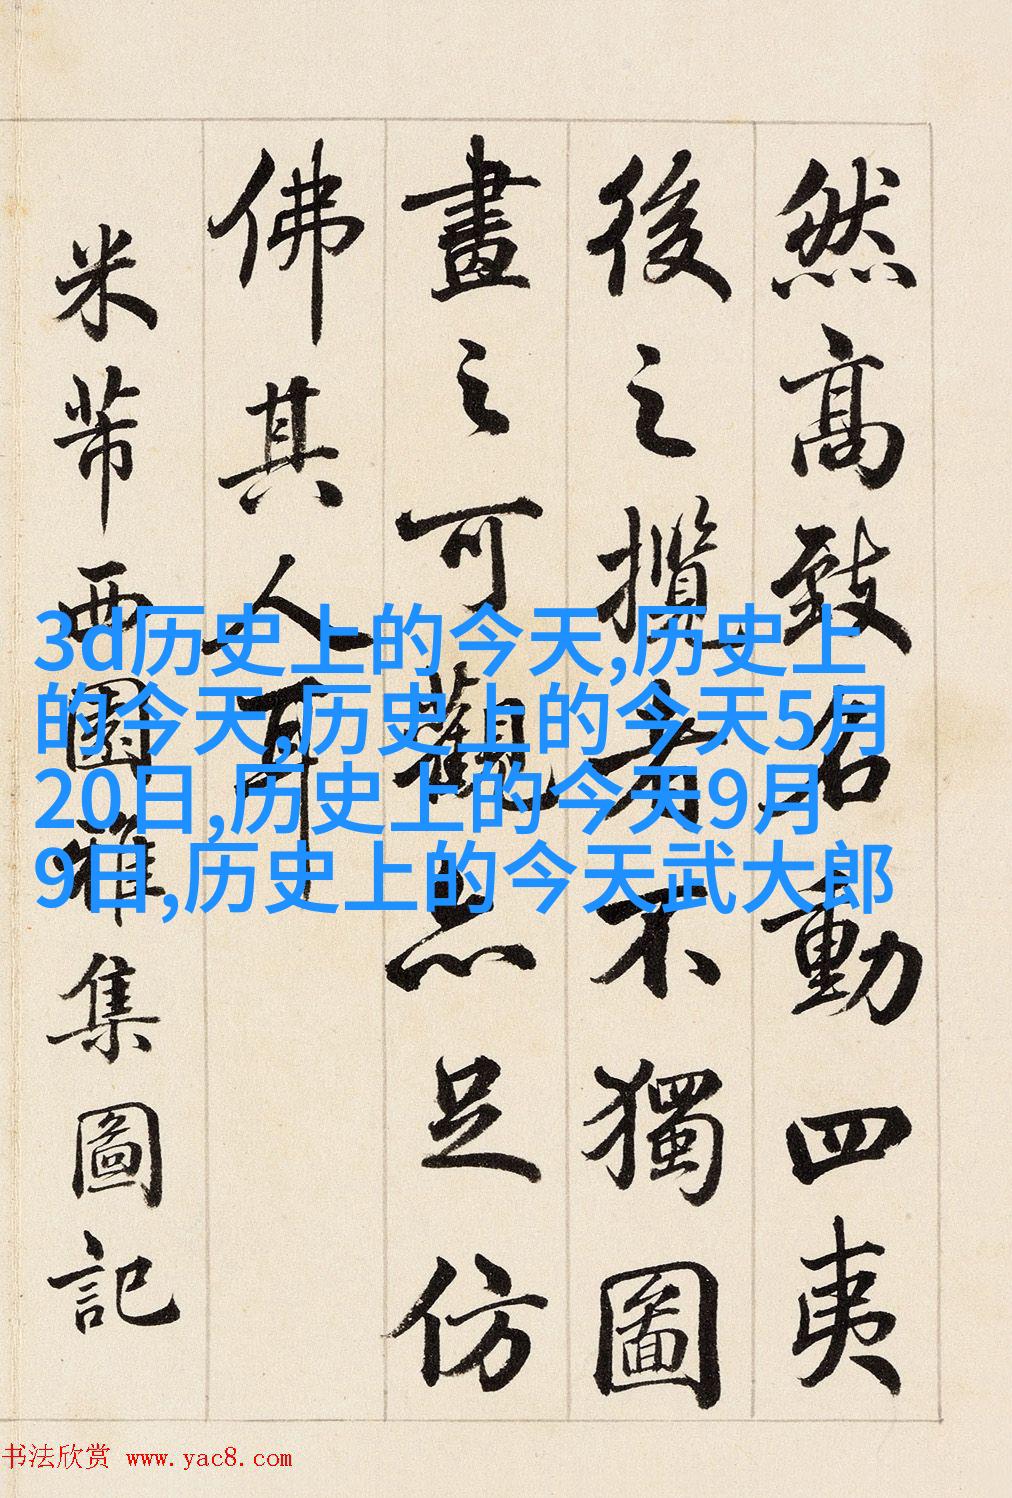 然高致名動四夷
後之攬者不獨圖
畫之可觀亦足仿
佛其人耳
米芾西園雅集圖記
3d历史上的今天,历史上
的今天,历史上的今天5月
20日,历史上的今天9月
9日,历史上的今天武大郎
书法欣赏 www.yac8.com